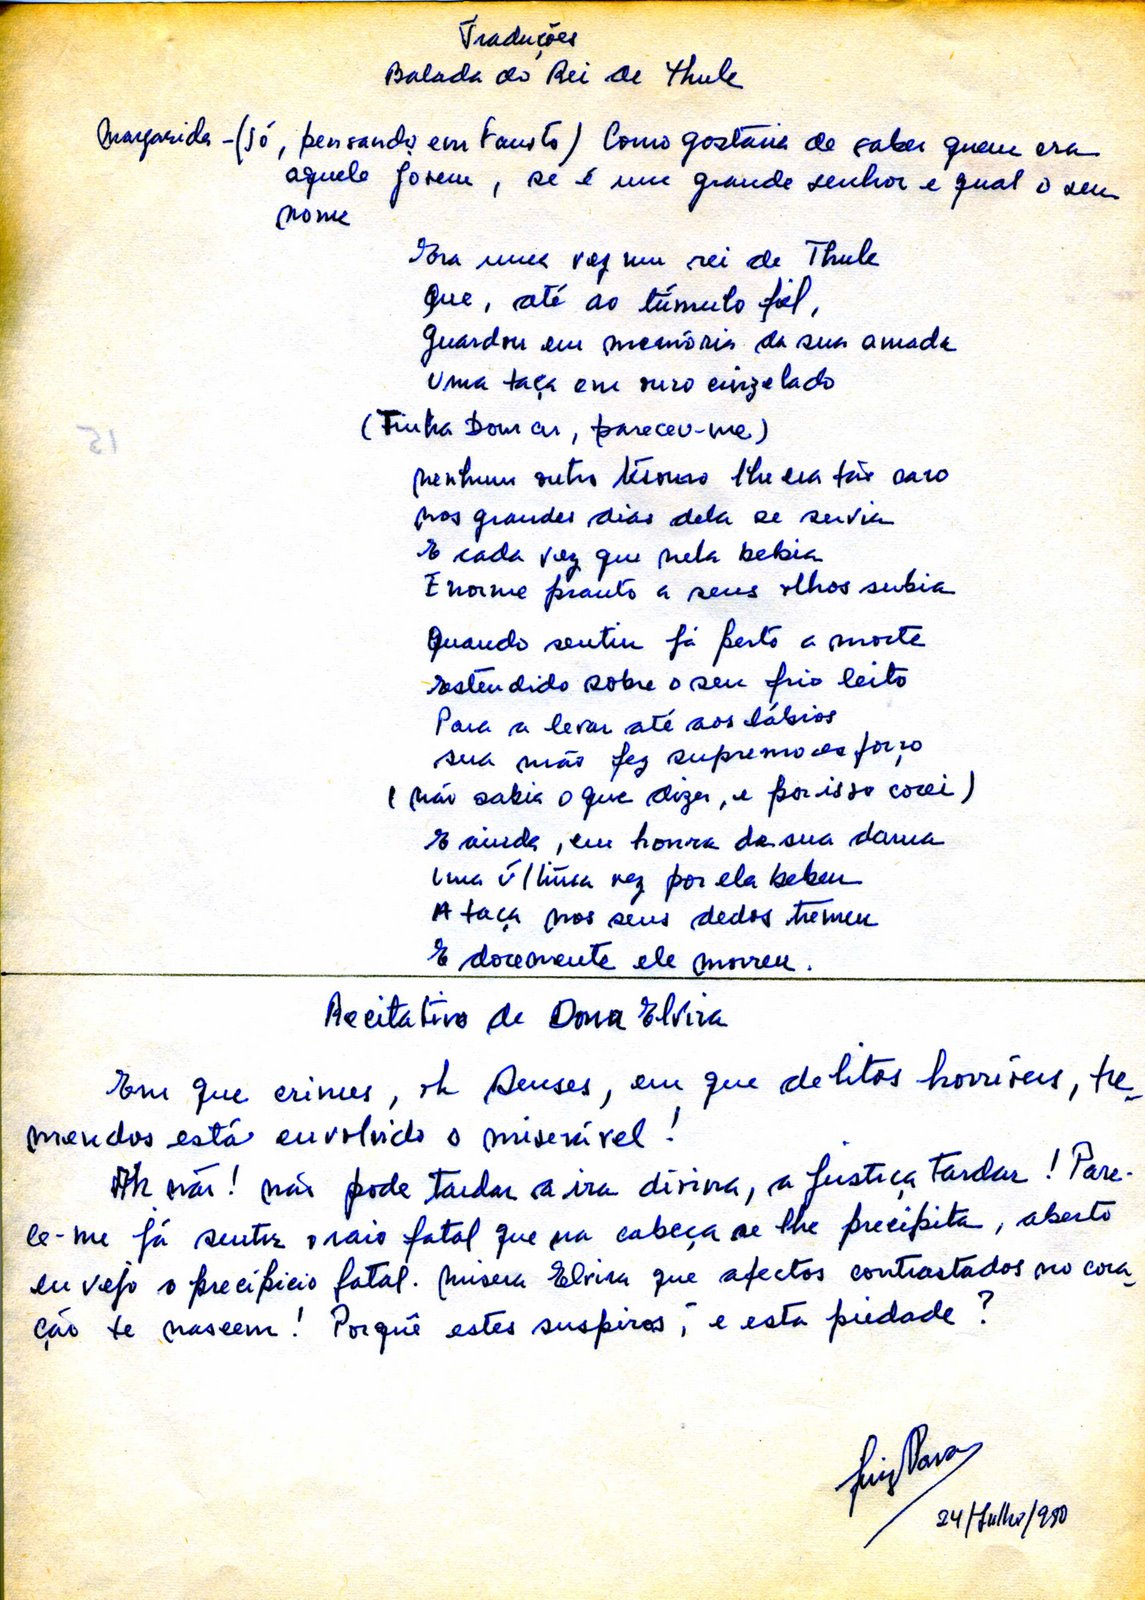 Traduções
Balada do Rei de Thule
Margarida - (só, pensando em Fausto) Como gostaria de saber quem era
aquele jovem, se é um grande senhor e qual o seu
nome
Era uma vez um rei de Thule
Que, até ao túmulo fiel,
Guardou em memória da sua amada
Uma taça em ouro cinzelado
(Tinha bom ar, pareceu-me)
nenhum outro tesouro lhe era tão caro
nos grandes dias dela se servia
E cada vez que nela bebia
Enorme pranto a seus olhos subia
Quando sentiu já perto a morte
Estendido sobre o seu frio leito
Para a levar até aos lábios
sua mão fez supremo esforço
(não sabia o que dizer, e por isso corei)
E ainda, em honra da sua dama
Uma última vez por ela bebeu
A taça nos seus dedos tremeu
E docemente ele morreu.
Recitativo de Dona Elvira
Em que crimes, oh Deuses, em que delitos horríveis, tre-
mendos está envolvido o miserável!
Ah não! não pode tardar a ira divina, a justiça tardar! Pare-
ce-me já sentir o raio fatal que na cabeça se lhe precipita, aberto
eu vejo o precipício fatal. Misera Elvira que afectos contrastados no cora-
ção te nascem! Porquê estes suspiros, e esta piedade?
24/Julho/980
15